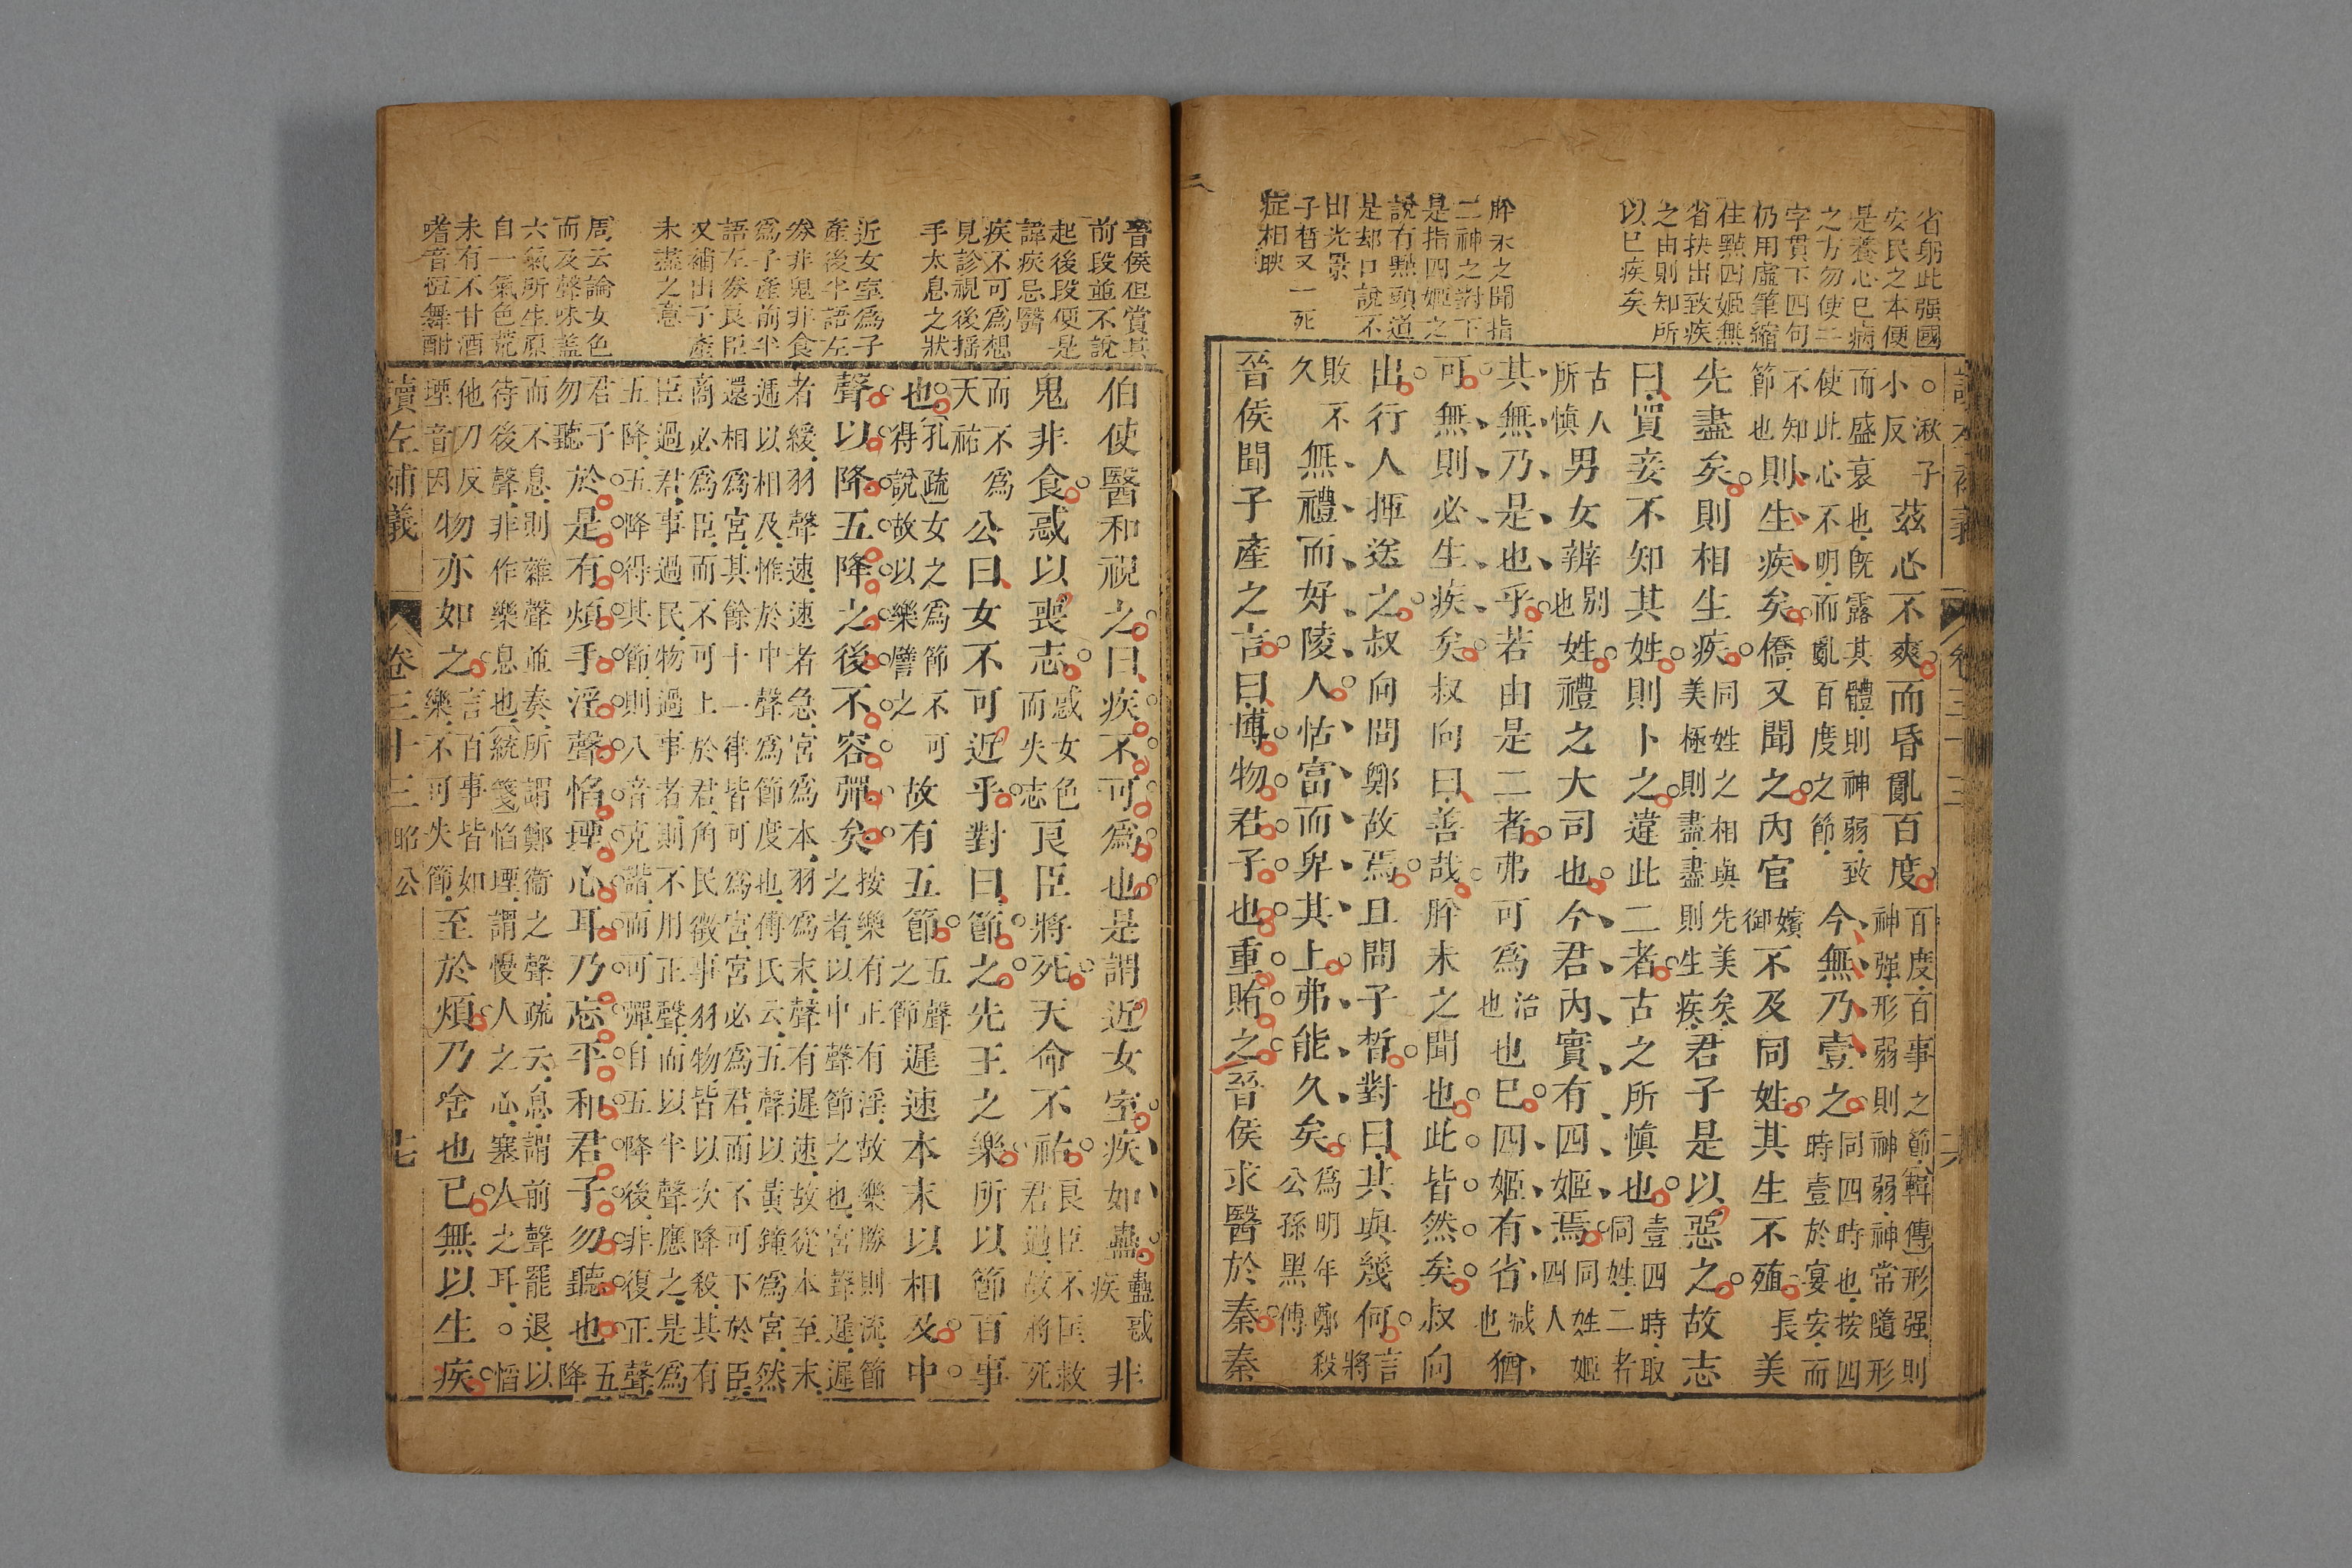 省躬此强國
安民之本便
是養心已病
之方勿使二
字貫下四句
仍用虛筆縮
住點四姬無
省抉出致疾
之由則知所
以已疾矣
肸未之聞指
二神之對下
是指四姬之
說有點頭道
是却口說不
出光景
子晳又一死
症相映
讀左補義 卷三十三 六
小反 湫子 茲心不爽而昏亂百度 百度百事之節輯傳形强則神强形弱則神弱神常隨形
而盛衰也既露其體則神弱致使此心不明而亂百度之節 今無乃壹之 同四時也按四時壹於宴安而
不知節也 則生疾矣僑又聞之內官 嬪御 不及同姓其生不殖 長 美
先盡矣則相生疾 同姓之相與先美矣美極則盡盡則生疾 君子是以惡之故志
曰買妾不知其姓則卜之違此二者古之所愼也 壹四時取同姓二者
古人所愼 男女辨 別也 姓禮之大司也今君內實有四姬焉 同姓姬四人
其無乃是也乎若由是二者弗可爲 治也 也已四姬有省 減也 猶
可無則必生疾矣叔向曰善哉肸未之聞也此皆然矣叔向
出行人揮送之叔向問鄭故焉且問子晳對曰其與幾何 言將
敗不久 無禮而好陵人怙富而卑其上弗能久矣 爲明年鄭殺公孫黑傳
晉侯聞子產之言曰博物君子也重賄之晉侯求醫於秦秦
晉侯但賞其
前段並不說
起後段便是
諱疾忌醫
疾不可爲想
見診視後搖
手太息之狀
近女室爲子
產後半語左
券非鬼非食
爲子產前半
語左券良臣
又補出子產
未盡之意
周云論女色
而及聲味蓋
六氣所生原
自一氣色荒
未有不甘酒
嗜音恆舞酣
伯使醫和視之曰疾不可爲也是謂近女室疾如蠱 蠱惑疾 非
鬼非食惑以喪志 惑女色而失志 良臣將死天命不祐 良臣不匡救君過故將死
而不爲天祐 公曰女不可近乎對曰節之先王之樂所以節百事
也 孔疏女之爲節不可得說故以樂譬之 故有五節 五聲之節 遲速本末以相及中
聲以降五降之後不容彈矣 按樂有正有淫故樂勝則流節之者以中聲節之也宮聲遲遲
者緩羽聲速速者急宮爲本羽爲末聲有遲速故從本至末遞以相及惟於中聲爲節度也傅氏云五聲以黃鐘爲宮然
還相爲宮其餘十一律皆可爲宮宮必爲君而不可下於臣商必爲臣而不可上於君角民徵事羽物皆以次降殺其有
臣過君事過民物過事者則不用正聲而以半聲應之是爲五降五降得其節則八音克諧而可彈自五降後非復正聲
君子勿聽 於是有煩手淫聲慆堙心耳乃忘平和君子勿聽也 五降
而不息則雜聲並奏所謂鄭衞之聲疏云息謂前聲罷退以待後聲非作樂息也統箋慆堙謂慢人之心塞人之耳○慆
他刀反堙音因 物亦如之 言百事皆如樂不可失節 至於煩乃舍也已無以生疾
讀左補義 卷三十三 昭公 七